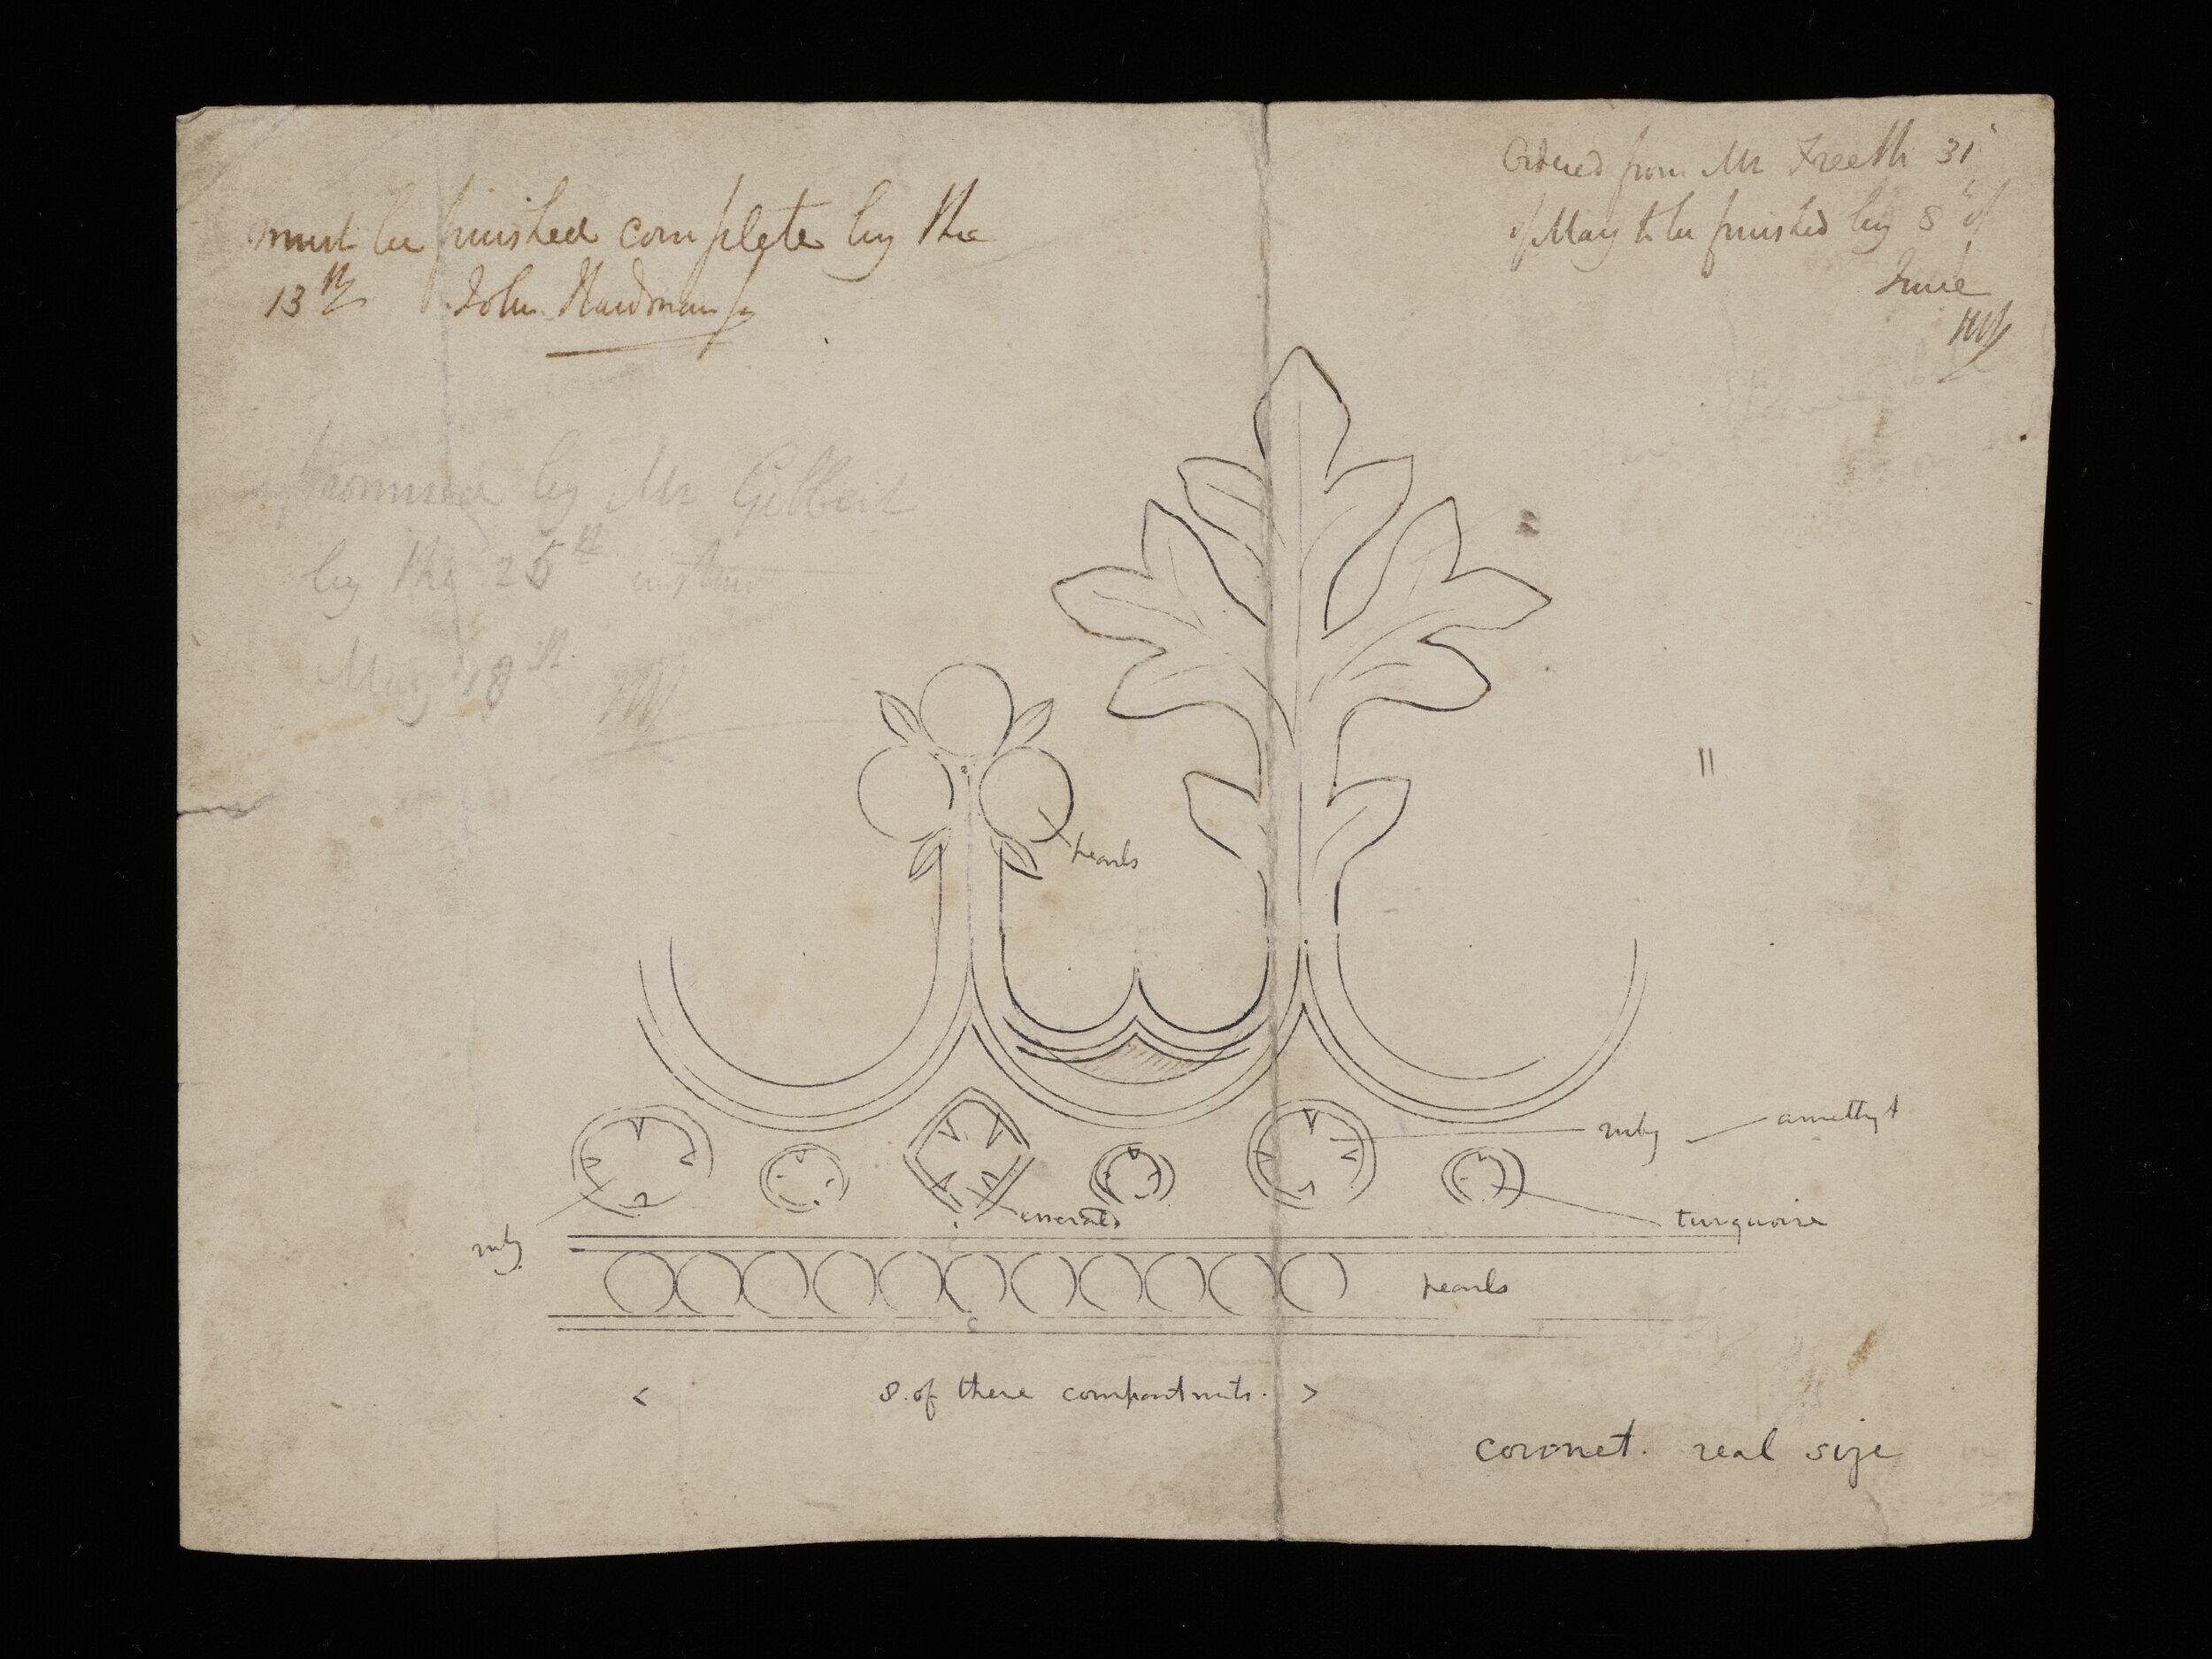 must be finished complete by the
13th John Hardman Jr
Ordered from Mr Freeth 31st
of May to be finished by 8th of
June
promised by Mr Gilbert
by the 25th
May 18th
pearls
ruby
amethyst
emerald
turquoise
ruby
pearls
< 8. of these compartments. >
coronet. real size